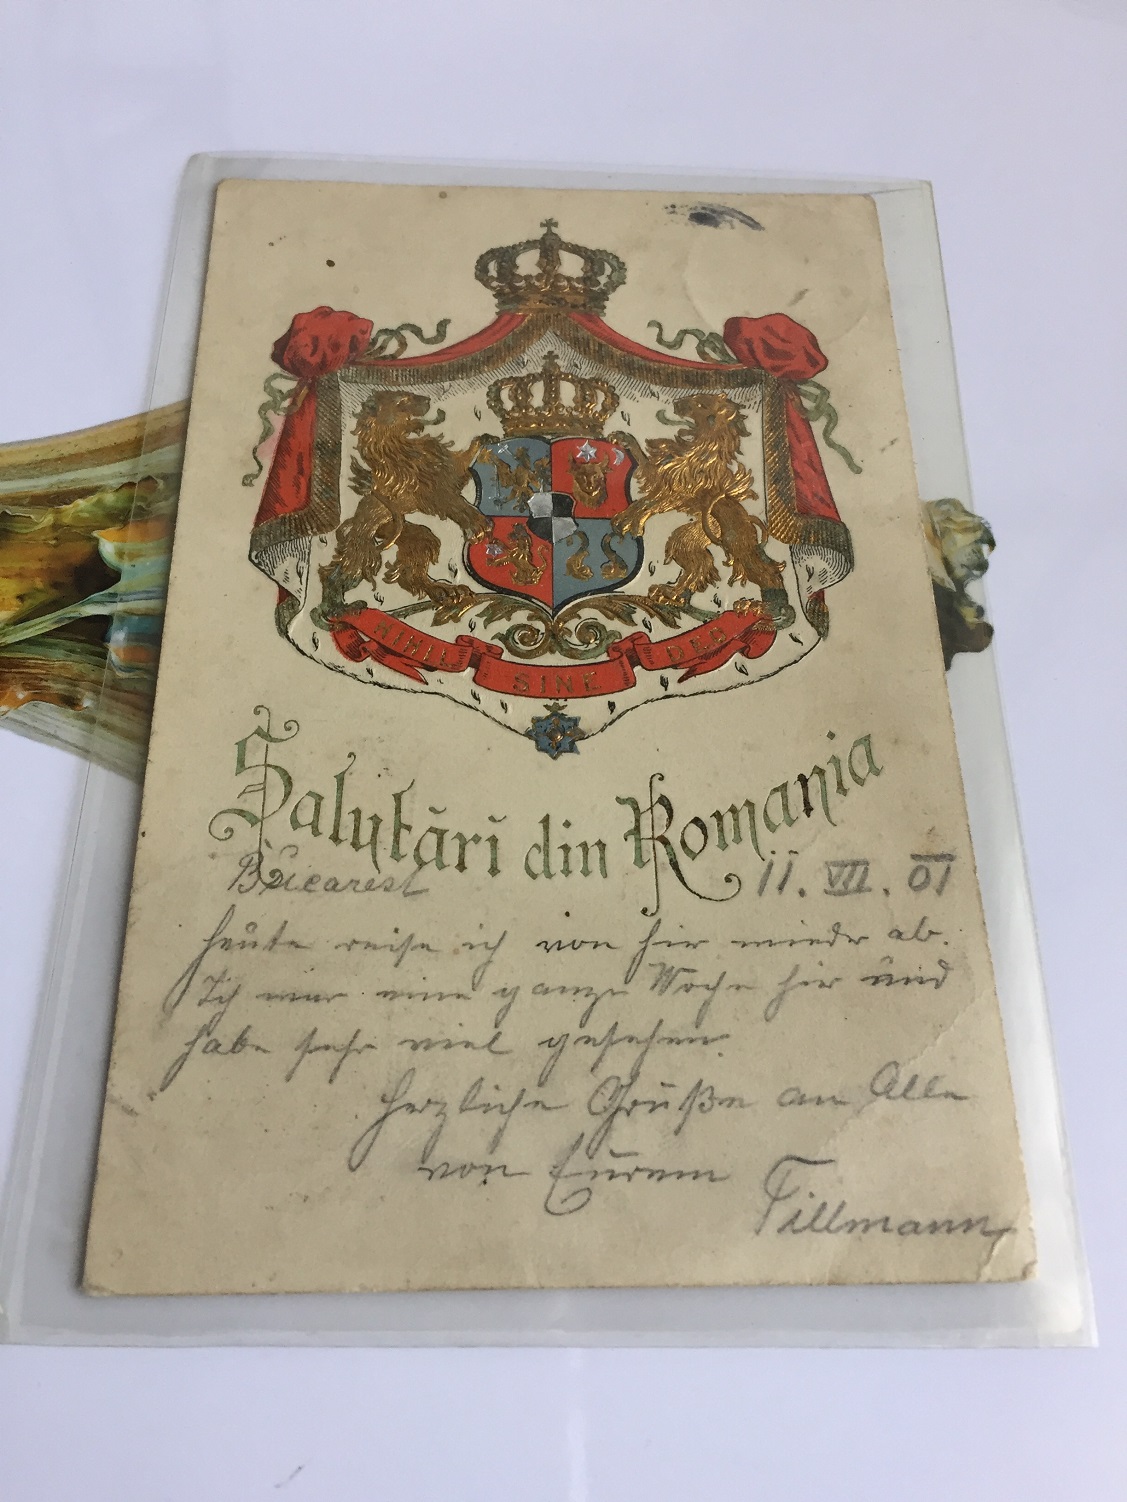 NIHIL SINE DEO
Salutări din Romania
Bucarest 11. VII. 01
heute reise ich von hir wieder ab.
Ich war eine ganze Woche hir und
habe sehr viel gesehen.
Herzliche Grüße an Alle
von Eurem
Tillmann